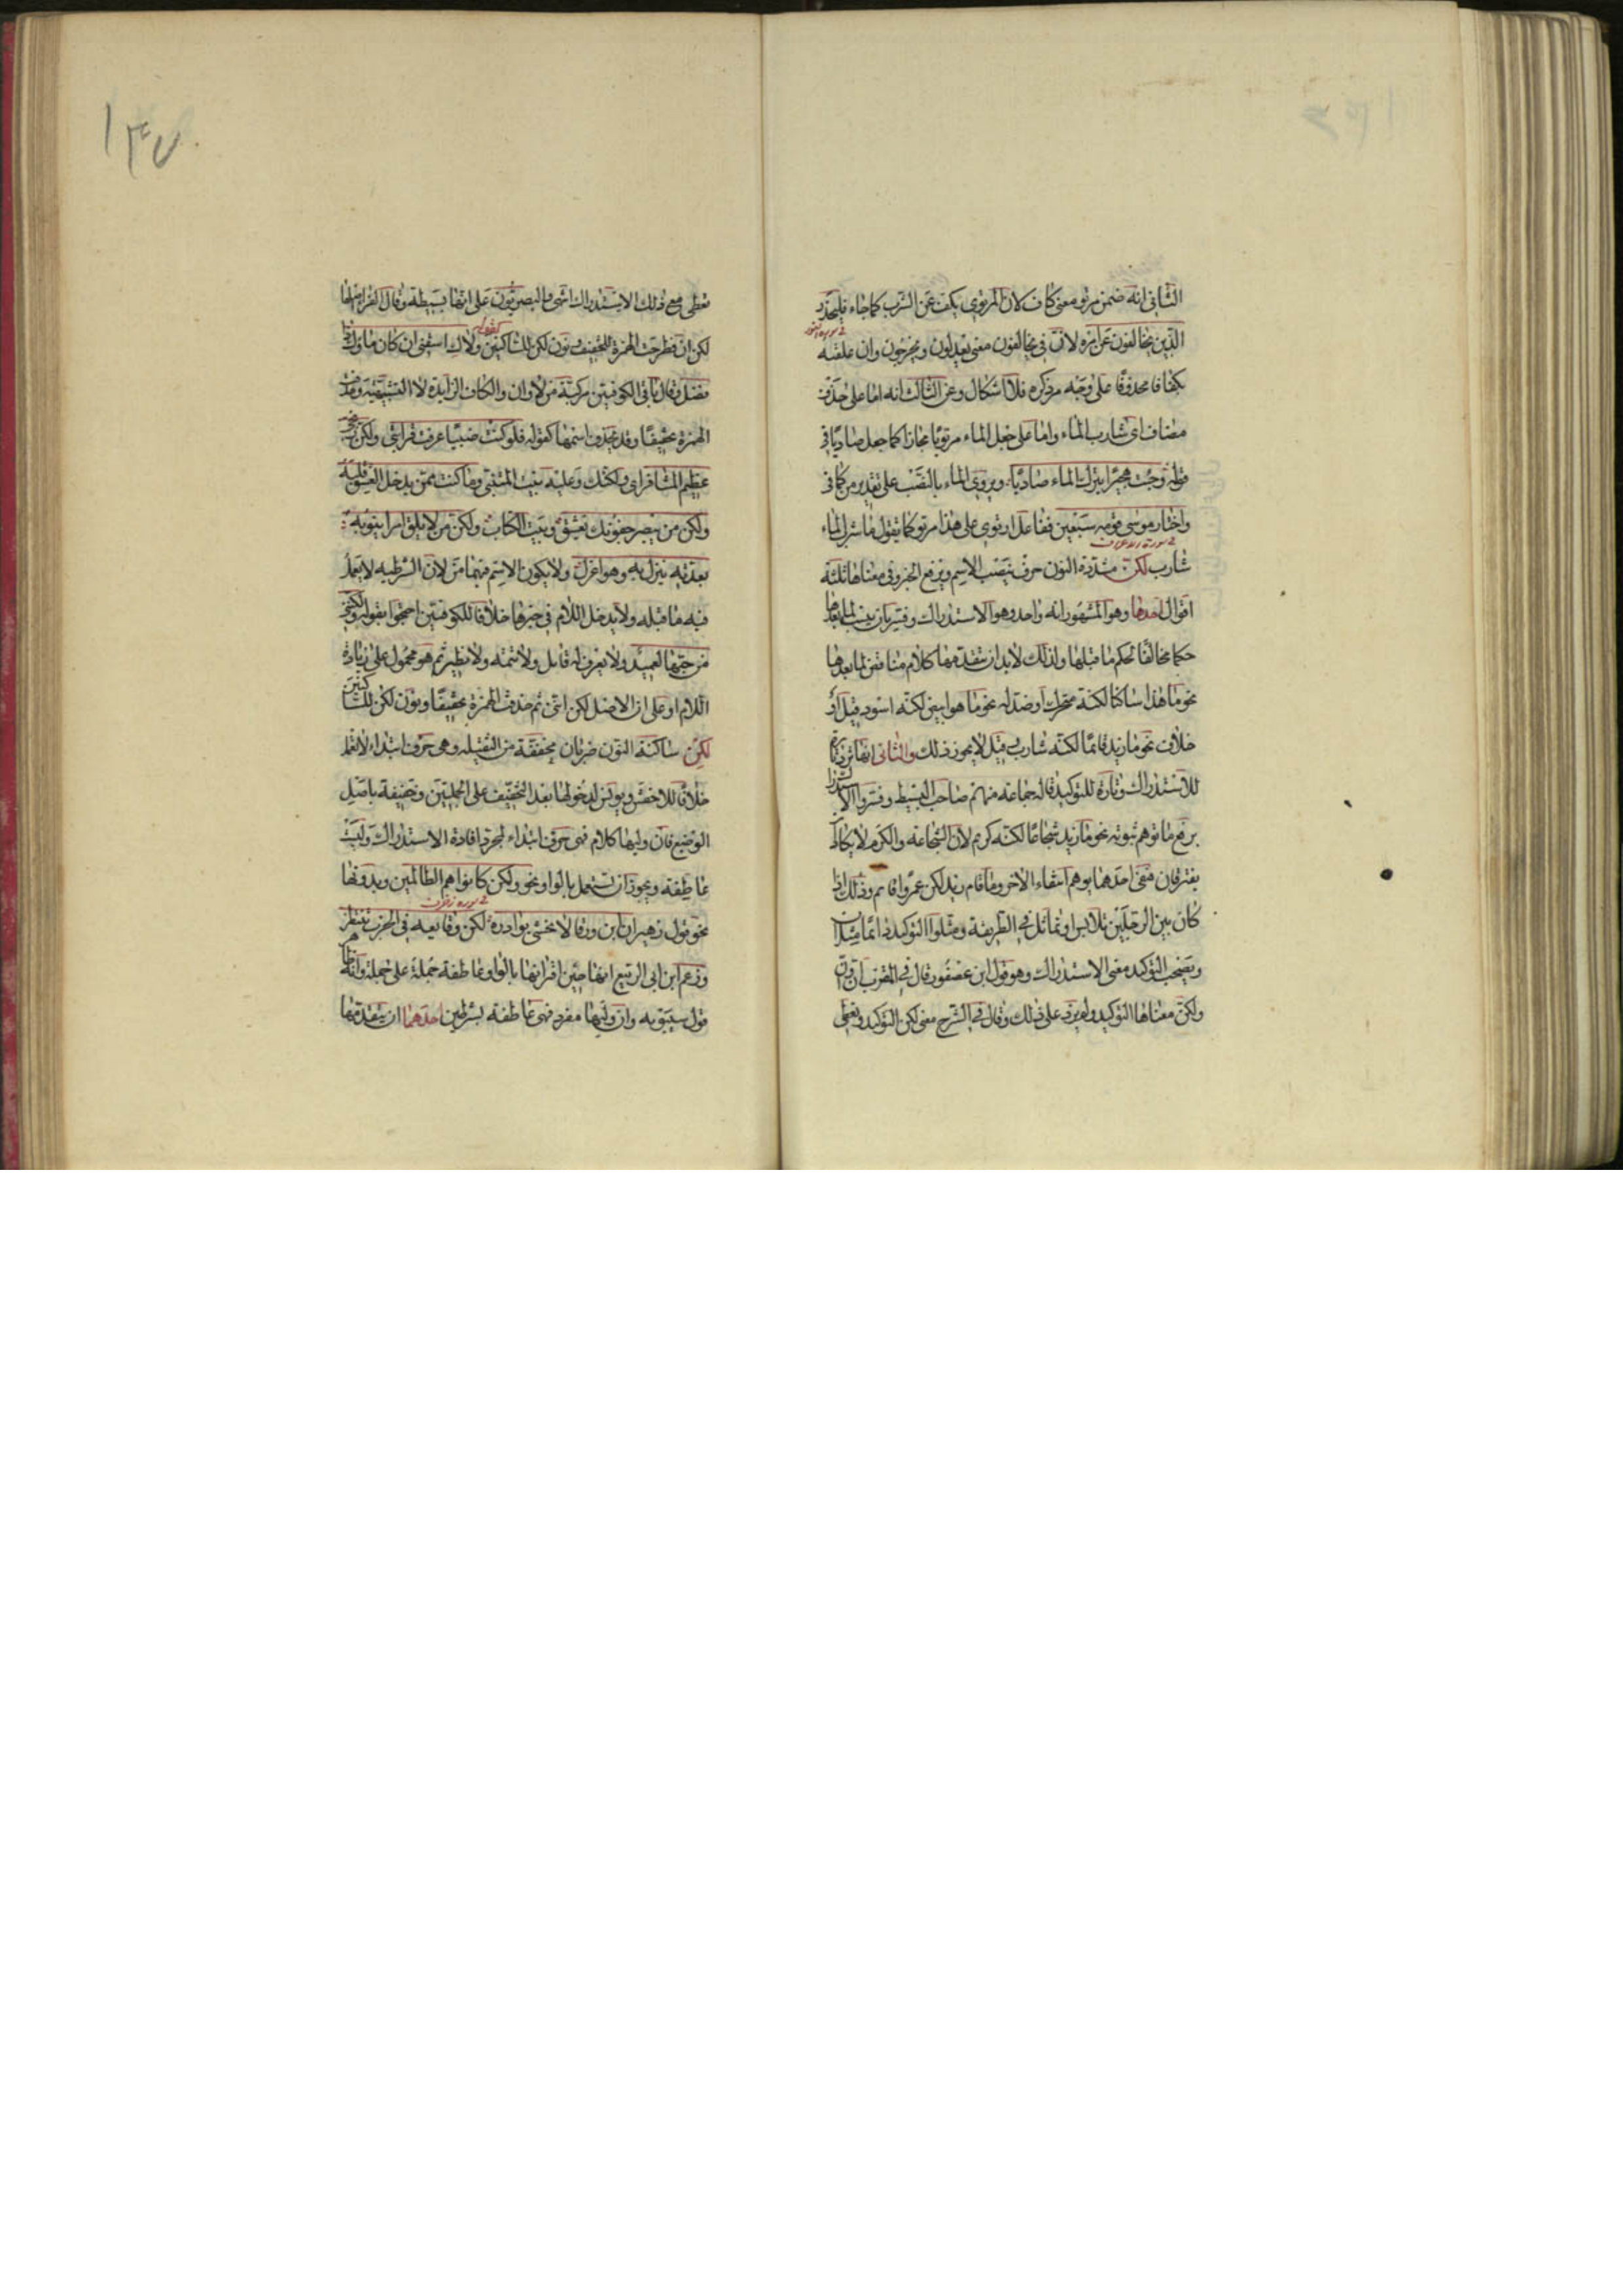 الثاني انه ضمن مرتو معنى كاف لان المرتوي يكف عن الشرب كما جاء فليحذر
الذين يخالفون عن امره لان في يخالفون معنى يعدلون ويخرجون وان علقته
في سورة النور
بكفافا محذوفا على وجه مر ذكره فلا اشكال وعن الثالث انه اما على حذف
مضاف اي شارب الماء واما على جعل الماء مرتويا مجازا كما جعل صاديا في
قوله وجبت هجيرا يترك الماء صاديا ويروى الماء بالنصب على تقدير من كما في
واختار موسى قومه سبعين ففاعل ارتوى على هذا مرتو كما يقول ما شرب الماء
في سورة الاعراف
شارب لكنّ مشددة النون حرف ينصب الاسم ويرفع الخبر وفي معناها ثلثة
اقوال احدها وهو المشهور انه واحد وهو الاستدراك وفسر بان ينسب لما بعدها
حكما مخالفا لحكم ما قبلها ولذلك لا بد ان يتقدمها كلام مناقض لما بعدها
نحو ما هذا ساكنا لكنه متحرك او ضد له نحو ما هو ابيض لكنه اسود قيل او
خلاف نحو ما زيد قائما لكنه شارب وقيل لا يجوز ذلك والثاني انها ترد تارة
للاستدراك وتارة للتوكيد قاله جماعة منهم صاحب البسيط وفسروا الاستدراك
برفع ما توهم ثبوته نحو ما زيد شجاعا لكنه كريم لان الشجاعة والكرم لا يكاد
يفترقان فنفي احدهما يوهم انتفاء الاخر وما قام زيد لكن عمروا قام وذلك اذا
كان بين الرجلين تلابس او تماثل في الطريقة ومثلوا التوكيد
ويصحب التوكيد معنى الاستدراك وهو قول ابن عصفور قال في المقرب ان وان
ولكن معناها التوكيد ولم يزد على ذلك وقال في الشرح معنى لكن التوكيد وتعطى
١٤٧
تعطى مع ذلك الاستدراك انتهى والبصريون على انها بسيطة وقال الفرا اصلها
لكن ان فطرحت الهمزة للتخفيف ونون لكن للساكنين ولاك اسقني ان كان ماؤك ذا
كقوله
فضل وقال باقي الكوفيين مركبة من لا وان والكاف الزايدة لا التشبيهية وحذفت
الهمزة تخفيفا وقد يحذف اسمها كقوله فلو كنت ضبيا عرفت قرابتي ولكن زنجي
عظيم المشافر اي ولكنك وعليه بيت المتنبي وما كنت ممن يدخل العشق قلبه
ولكن من يبصر جفونك يعشق وبيت الكتاب ولكن من لا يلق امرا ينوبه
بعدته ينزل به وهو اعزل ولا يكون الاسم فيهما من لان الشرط به لا يعمل
فيه ما قبله ولا يدخل اللام في خبرها خلافا للكوفيين احتجوا بقوله ولكنني
من حبها لعميد ولا يعرف له قايل ولا تتمة ولا نظير ثم هو محمول على زيادة
اللام او على ان الاصل لكن انني ثم حذفت الهمزة تخفيفا ونون لكن للساكنين
لكن ساكنة النون ضربان مخففة من الثقيلة وهي حرف ابتداء لا تعمل
خلافا للاخفش ويونس لدخولها بعد التخفيف على الجملتين وخفيفة باصل
الوضع فان وليها كلام فهي حرف ابتداء لمجرد افادة الاستدراك وليست
عاطفة ويجوز ان تستعمل بالواو نحو ولكن كانوا هم الظالمين وبدونها
في سورة زخرف
نحو قول زهير ان ابن ورقا لا تخشى بوادره لكن وقايعه في الحرب تنتظر
وزعم ابن ابي الربيع انها حين اقترانها بالواو عاطفة جملة على جملة وانه ظاهر
قول سيبويه وان وليها مفرد فهي عاطفة بشرطين احدهما ان يتقدمها